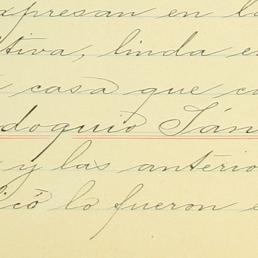 xpresan en la
tiva, linda en
casa que co
doquio Sán
y las anterio
icó lo fueron e